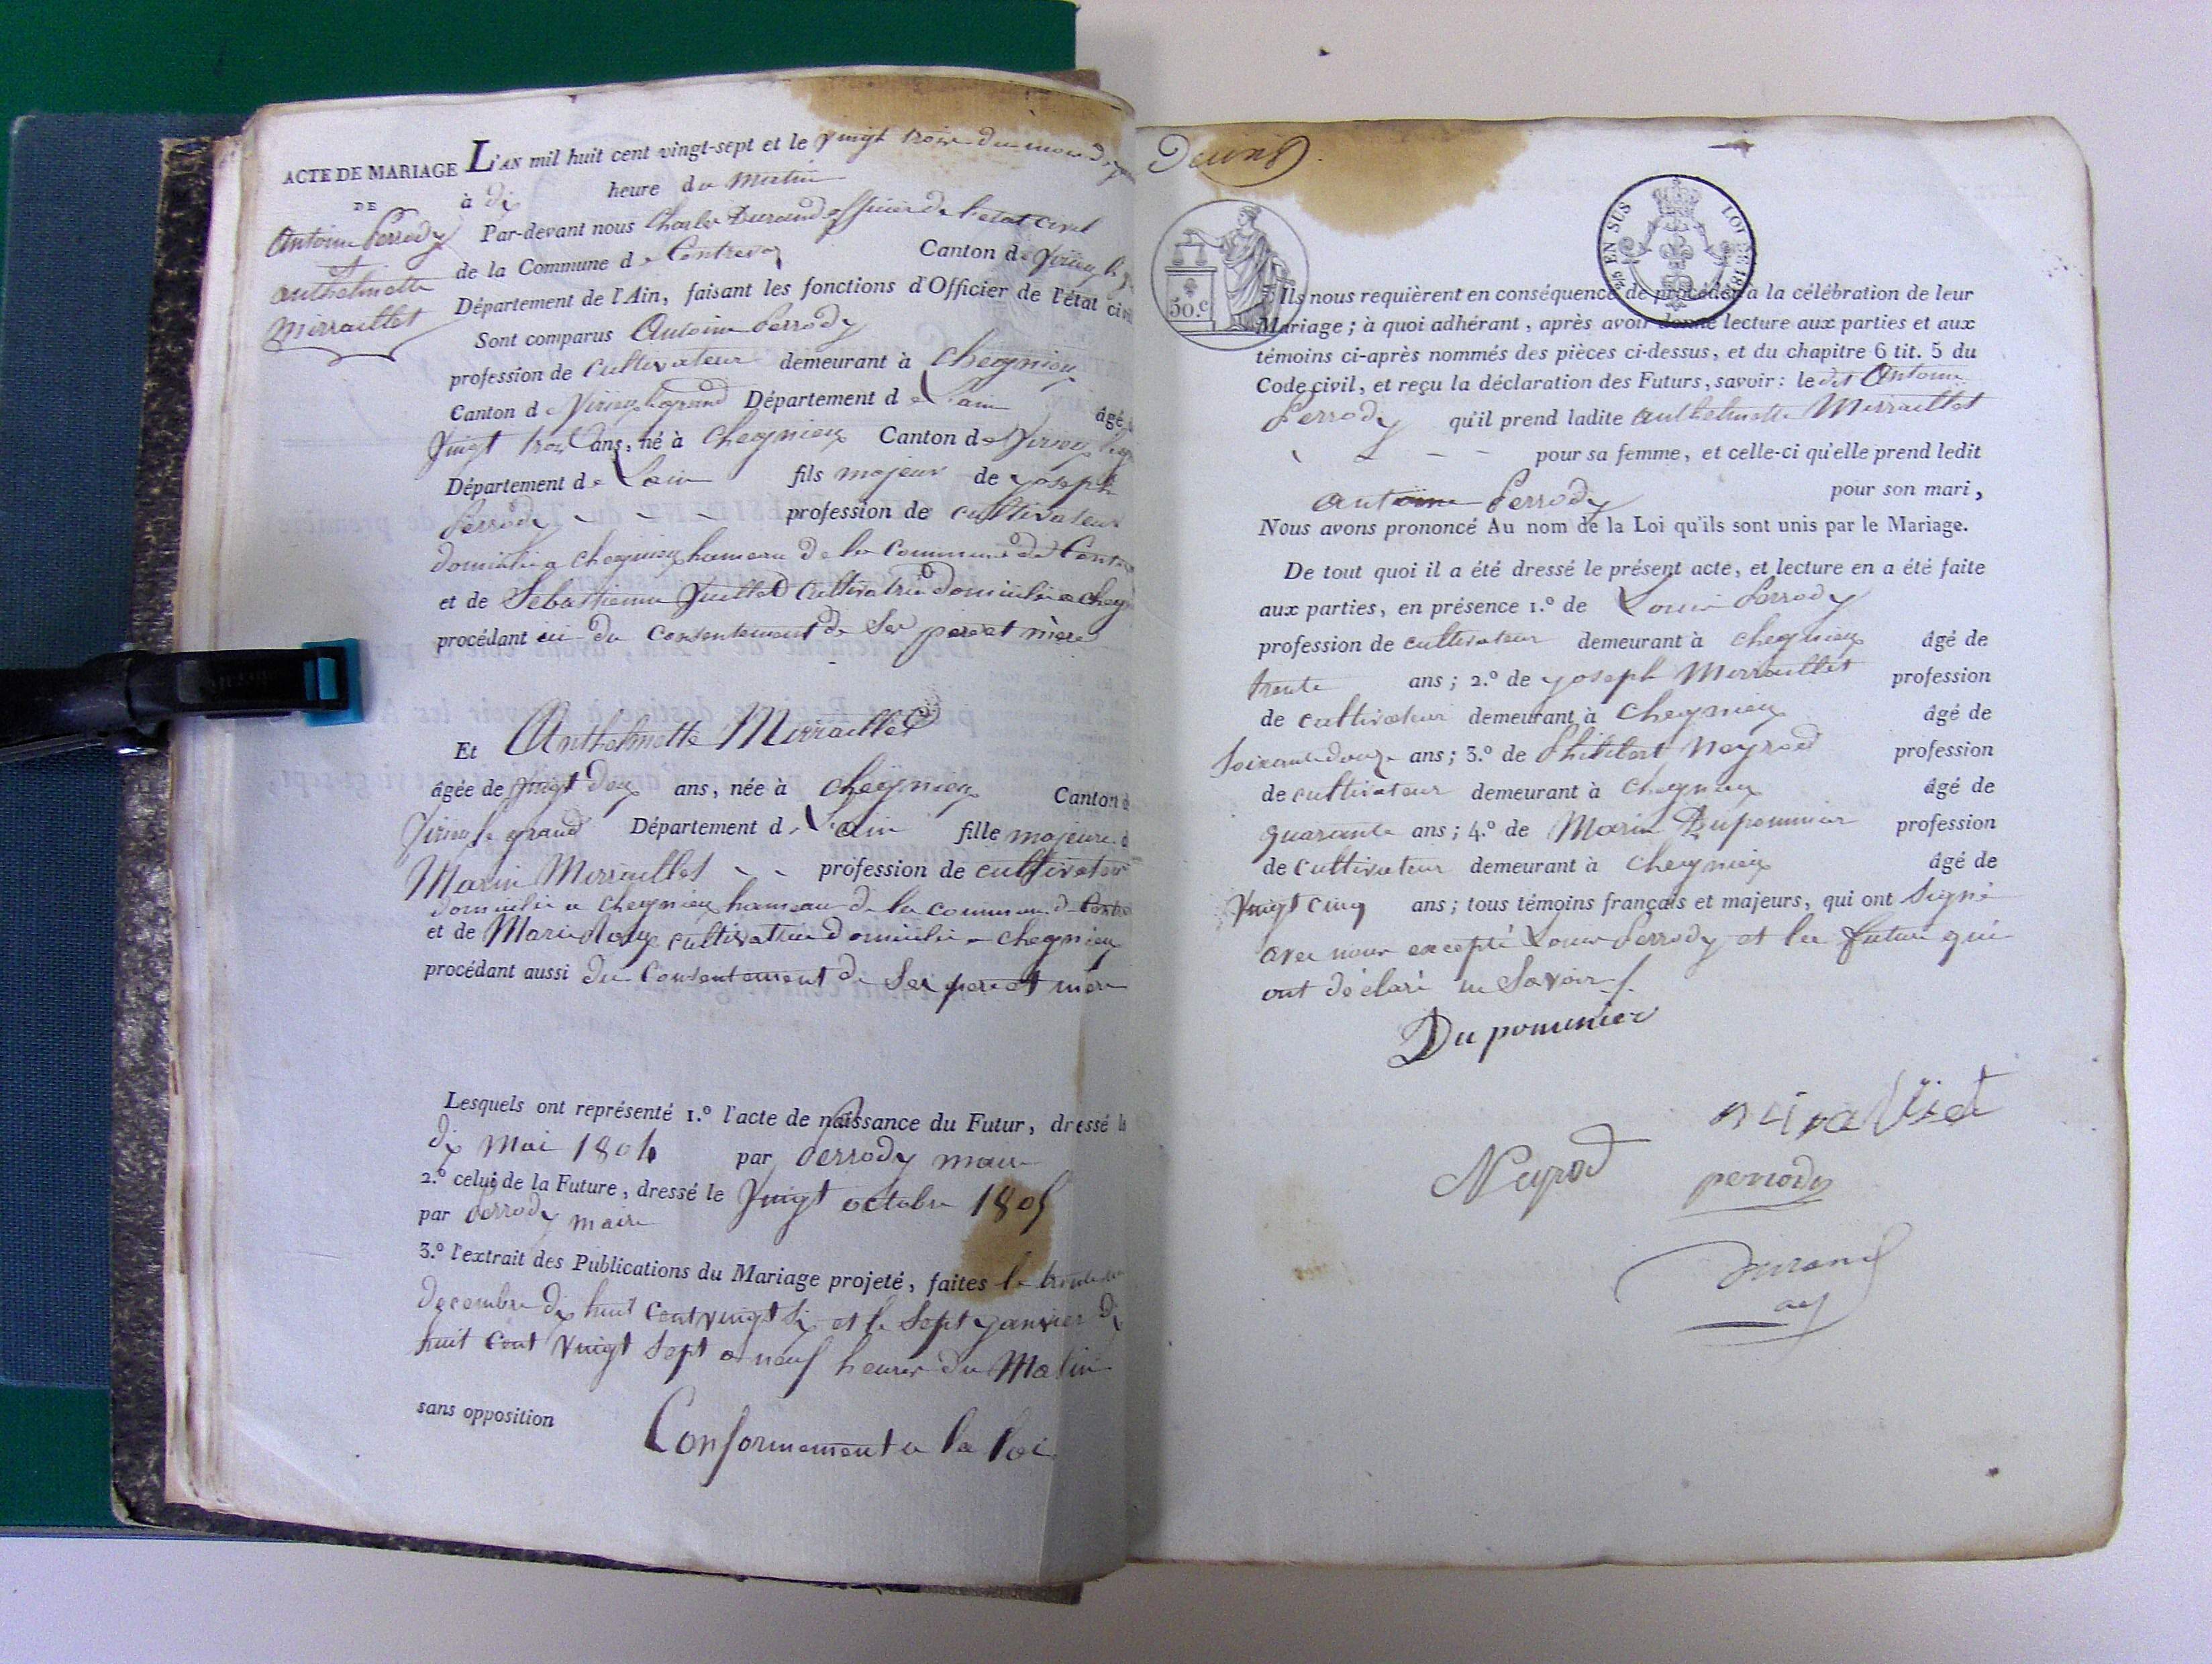 ACTE DE MARIAGE
DE
Antoine Perrody
et
anthelmette
Mirraillet
L'AN mil huit cent vingt-sept et le vingt trois du mois de
à dix heure du Matin
Par-devant nous Charles Durand officier de l'etat civil
de la Commune de Contrevoz Canton de Virieu le g
Département de l'Ain, faisant les fonctions d'Officier de l'état civil
Sont comparus Antoine Perrody
profession de cultivateur demeurant à cheynieu
Canton de Virieu le grand Département de L'ain âgé
vingt trois ans, né à Cheynieux Canton de Virieu le
Département de L'ain fils majeur de joseph
Perrody - - - profession de cultivateur
domicilié a cheynieu hameau de la Commune de Contre
et de Sebastienne Juillet Cultivatrice domiciliée a chey
procédant ici du Consentement de Ses pere et mère
Et Anthelmette Mirraillet
âgée de vingt deux ans, née à cheynieu Canton d
Virieu le grand Département de L'ain fille majeure d
Marin Mirraillet - - profession de cultivateur
domicilié a cheynieu hameau de la commune de Contre
et de Marie cultivatrice domiciliée a cheynieu
procédant aussi du Consentement de Ses pere et mère
Lesquels ont représenté 1.º l'acte de naissance du Futur, dressé le
dix Mai 1804 par Perrody maire
2.º celui de la Future, dressé le vingt octobre 1805
par Perrody maire
3.º l'extrait des Publications du Mariage projeté, faites le trente
decembre dix huit cent vingt six et le Sept janvier dix
huit cent vingt sept a neuf heures du Matin
sans opposition Conformement a la loi
50.c
25 EN SUS LOI DE 18
Ils nous requièrent en conséquence de procéder à la célébration de leur
Mariage ; à quoi adhérant, après avoir donné lecture aux parties et aux
témoins ci-après nommés des pièces ci-dessus, et du chapitre 6 tit. 5 du
Code civil, et reçu la déclaration des Futurs, savoir : le dit Antoine
Perrody qu'il prend ladite anthelmette Mirraillet
- - - - pour sa femme, et celle-ci qu'elle prend ledit
antoine Perrody pour son mari,
Nous avons prononcé Au nom de la Loi qu'ils sont unis par le Mariage.
De tout quoi il a été dressé le présent acte, et lecture en a été faite
aux parties, en présence 1.º de Louis Perrody
profession de cultivateur demeurant à cheynieu âgé de
trente ans ; 2.º de joseph Mirraillet profession
de cultivateur demeurant à cheynieu âgé de
soixante douze ans ; 3.º de Philibert Neyrod profession
de cultivateur demeurant à cheynieu âgé de
quarante ans ; 4.º de Marin Dupommier profession
de cultivateur demeurant à cheynieu âgé de
Vingt cinq ans ; tous témoins français et majeurs, qui ont signé
avec nous excepté Louis Perrody et la future qui
ont déclaré ne Savoir
Du pommier
Neyrod
perrody
Durand